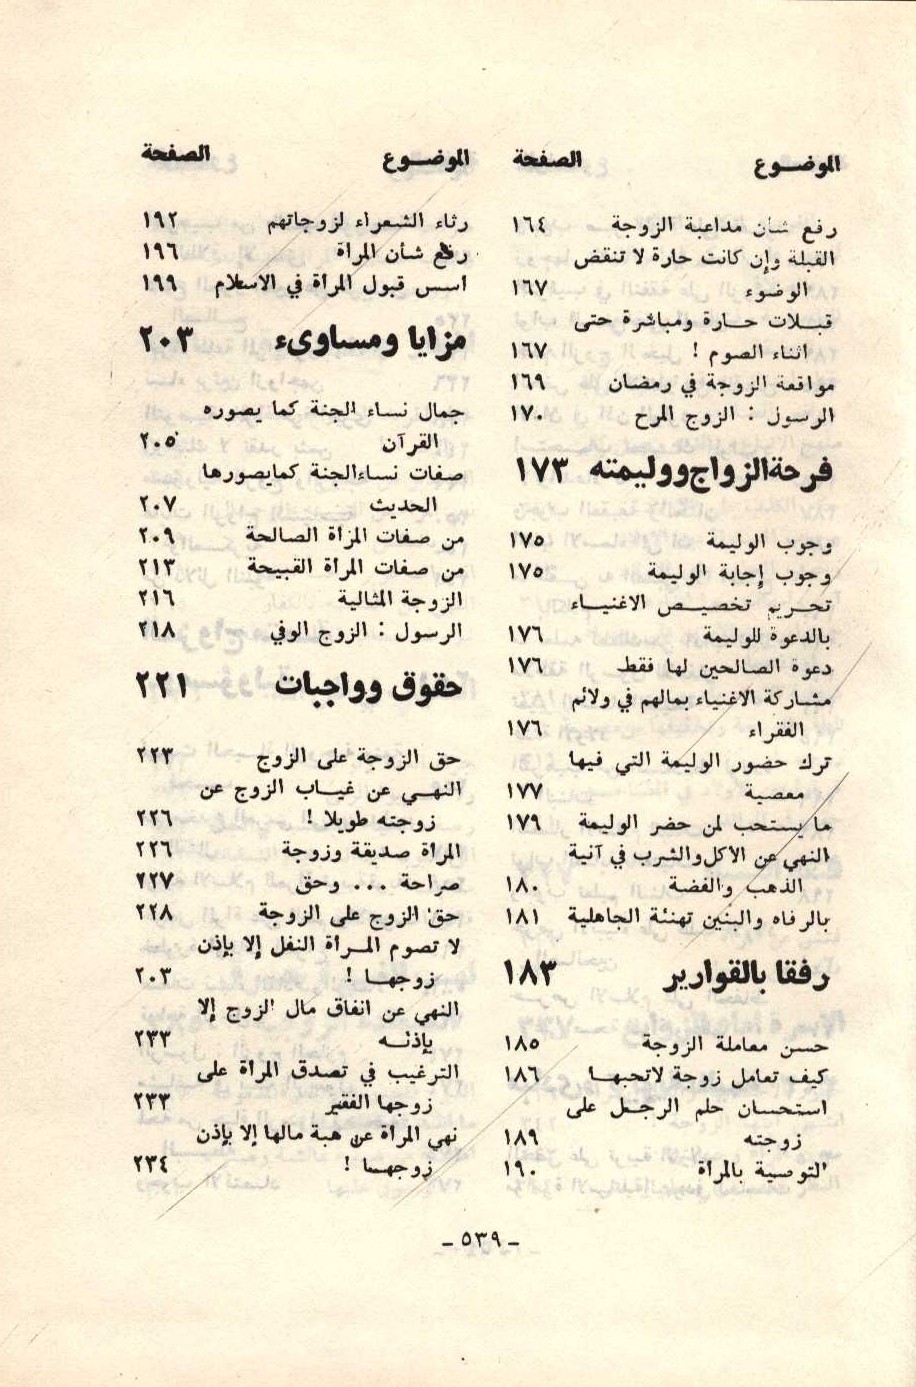 الموضوع الصفحة
رفع شأن مداعبة الزوجة ١٦٤
القبلة وإن كانت حارة لا تنقض
الوضوء ١٦٧
قبلات حارة ومباشرة حتى
اثناء الصوم ! ١٦٧
مواقعة الزوجة في رمضان ١٦٩
الرسول : الزوج المرح ١٧٠
فرحة الزواج ووليمته ١٧٣
وجوب الوليمة ١٧٥
وجوب إجابة الوليمة ١٧٥
تحريم تخصيص الاغنياء
بالدعوة للوليمة ١٧٦
دعوة الصالحين لها فقط ١٧٦
مشاركة الاغنياء بمالهم في ولائم
الفقراء ١٧٦
ترك حضور الوليمة التي فيها
معصية ١٧٧
ما يستحب لمن حضر الوليمة ١٧٩
النهي عن الاكل والشرب في آنية
الذهب والفضة ١٨٠
بالرفاه والبنين تهنئة الجاهلية ١٨١
رفقا بالقوارير ١٨٣
حسن معاملة الزوجة ١٨٥
كيف تعامل زوجة لاتحبها ١٨٦
استحسان حلم الرجل على
زوجته ١٨٩
التوصية بالمرأة ١٩٠
الموضوع الصفحة
رثاء الشعراء لزوجاتهم ١٩٢
رفع شأن المرأة ١٩٦
اسس قبول المرأة في الاسلام ١٩٩
مزايا ومساوىء ٢٠٣
جمال نساء الجنة كما يصوره
القرآن ٢٠٥
صفات نساء الجنة كمايصورها
الحديث ٢٠٧
من صفات المرأة الصالحة ٢٠٩
من صفات المرأة القبيحة ٢١٣
الزوجة المثالية ٢١٦
الرسول : الزوج الوفي ٢١٨
حقوق وواجبات ٢٢١
حق الزوجة على الزوج ٢٢٣
النهي عن غياب الزوج عن
زوجته طويلا ! ٢٢٦
المرأة صديقة وزوجة ٢٢٦
صراحة ... وحق ٢٢٧
حق الزوج على الزوجة ٢٢٨
لا تصوم المرأة النفل إلا بإذن
زوجها ! ٢٠٣
النهي عن انفاق مال الزوج إلا
بإذنه ٢٣٣
الترغيب في تصدق المرأة على
زوجها الفقير ٢٣٣
نهي المرأة عن هبة مالها إلا بإذن
زوجها ! ٢٣٤
ـ ٥٣٩ ـ